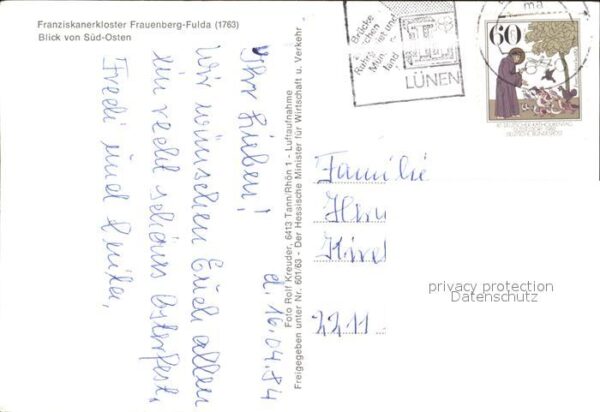 Franziskanerkloster Frauenberg-Fulda (1763)
Blick von Süd-Osten
d. 16.04.84
Ihr Lieben!
Wir wünschen Euch allen
ein recht schönes Osterfest,
Fredi und
Foto Rolf Kreuder, 6413 Tann/Rhön 1 - Luftaufnahme
Freigegeben unter Nr. 601/63 - Der Hessische Minister für Wirtschaft u. Verkehr
Brücke
zwischen
Ruhrgebiet und
Münster
land
LÜNEN
60
DEUTSCHER KATHOLIKENTAG
DEUTSCHE BUNDESPOST
Familie
2211
privacy protection
Datenschutz